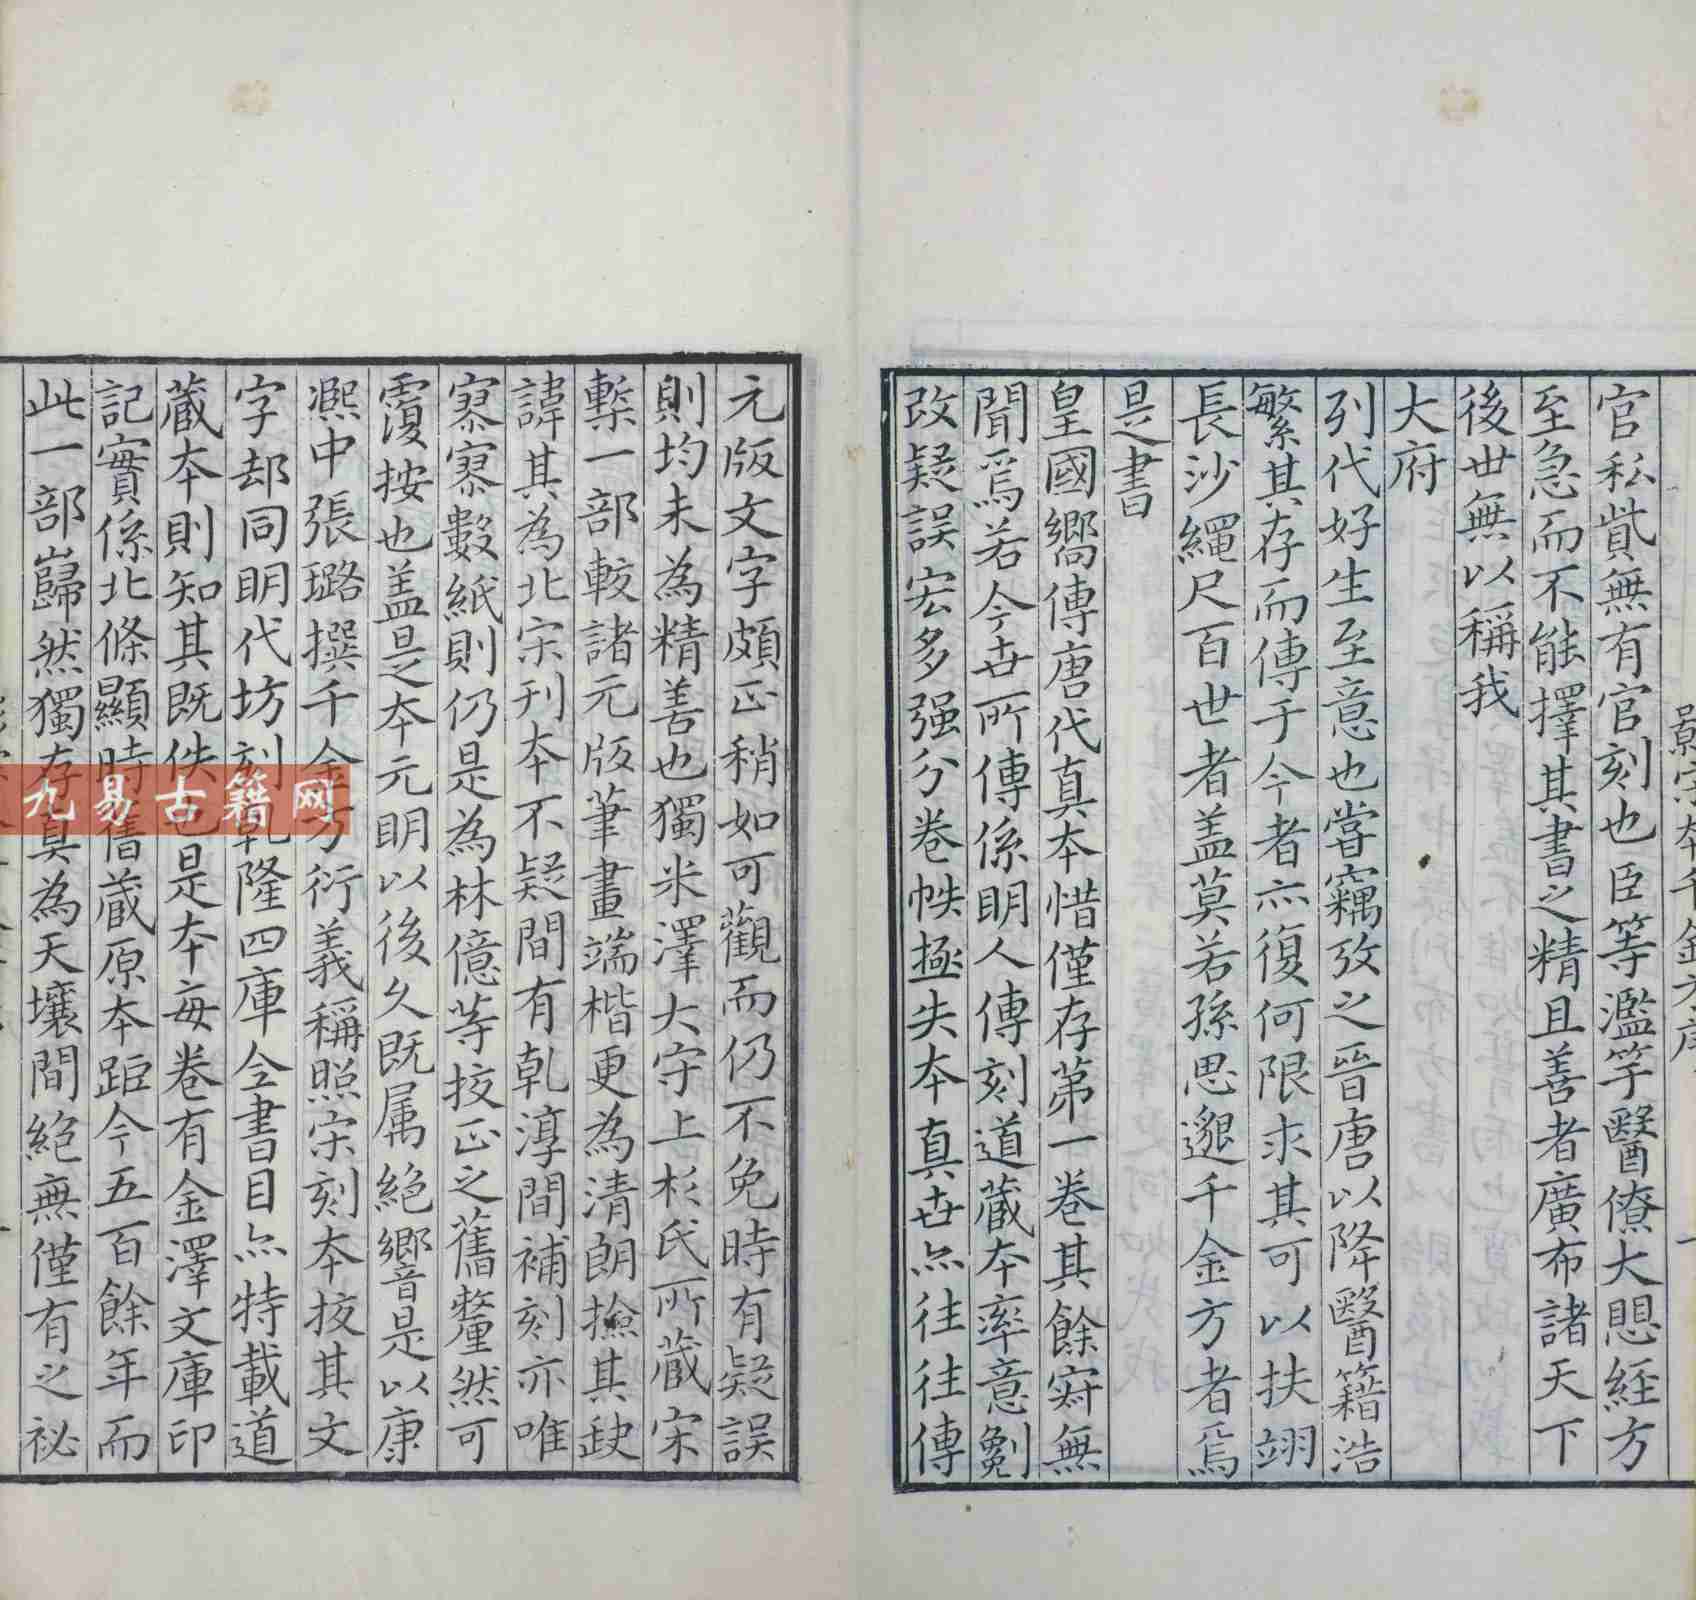 景宋本千金方序
官私貲無有官刻也臣等濫竽醫僚大懼經方
至急而不能擇其書之精且善者廣布諸天下
後世無以稱我
大府
列代好生至意也嘗竊攷之晉唐以降醫籍浩
繁其存而傳于今者亦復何限求其可以扶翊
長沙繩尺百世者盖莫若孫思邈千金方者焉
是書
皇國嚮傳唐代真本惜僅存第一卷其餘寂無
聞焉若今世所傳係明人傳刻道藏本率意劖
改疑誤宏多强分卷帙極失本真世亦往往傳
元版文字頗正稍如可觀而仍不免時有疑誤
則均未為精善也獨米澤大守上杉氏所藏宋
槧一部較諸元版筆畫端楷更為清朗撿其缺
諱其為北宋刊本不疑間有乾淳間補刻亦唯
寥寥數紙則仍是為林億等挍正之舊釐然可
覆按也盖是本元明以後久既属絕響是以康
熙中張璐撰千金方衍義稱照宋刻本挍其文
字却同明代坊刻乾隆四庫全書目亦特載道
藏本則知其既佚也是本每卷有金澤文庫印
記實係北條顯時舊藏原本距今五百餘年而
此一部巋然獨存真為天壤間絕無僅有之祕
九易古籍网